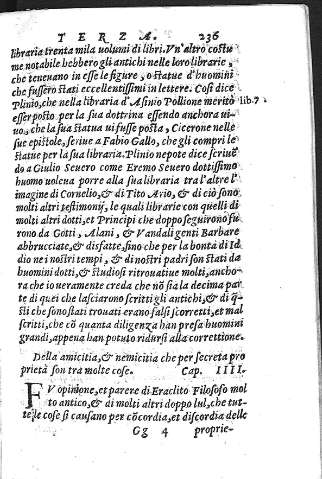 TERZA. 236
libraria trenta mila uolumi di libri. Vn'altro costu
me notabile hebbero gli antichi nelle loro librarie,
che teneuano in esse le figure, o statue d'huomini
che fussero stati eccellentissimi in lettere. Cosi dice
Plinio, che nella libraria d'Asinio Pollione meritò lib.7.
esser posto per la sua dottrina essendo anchora ui-
uo, che la sua statua ui fusse posta, Cicerone nelle
sue epistole, scriue a Fabio Gallo, che gli compri le
statue per la sua libraria. Plinio nepote dice scriuē
do a Giulio Seuero come Eremo Seuero dottissimo
huomo uolcua porre alla sua libraria tra l'altre l'
imagine di Cornelio, & di Tito Ario, & di ciò sono
molti altri testimonij, le quali librarie con quelli di
molti altri dotti, et Principi che doppo seguirono fu
rono da Gotti, Alani, & Vandali genti Barbare
abbrucciate, & disfatte, fino che per la bontà di Id
dio nei nostri tempi, & di nostri padri son stati da
huomini dotti, & studiosi ritrouati ue molti, ancho-
ra che io ueramente creda che nō sia la decima par
te di quei che lasciarono scritti gli antichi, & di q̄-
sti che sono stati trouati erano falsi scorretti, et mal
scritti, che cō quanta diligenza han presa huomini
grandi, appena han potuto ridursi alla correttione.
Della amicitia, & nemicitia che per secreta pro
prietà son tra molte cose. Cap. IIII.
FV opinione, et parere di Eraclito Filosofo mol
to antico, & di molti altri doppo lui, che tut-
te le cose si causano per cōcordia, et discordia delle
Gg 4 proprie-